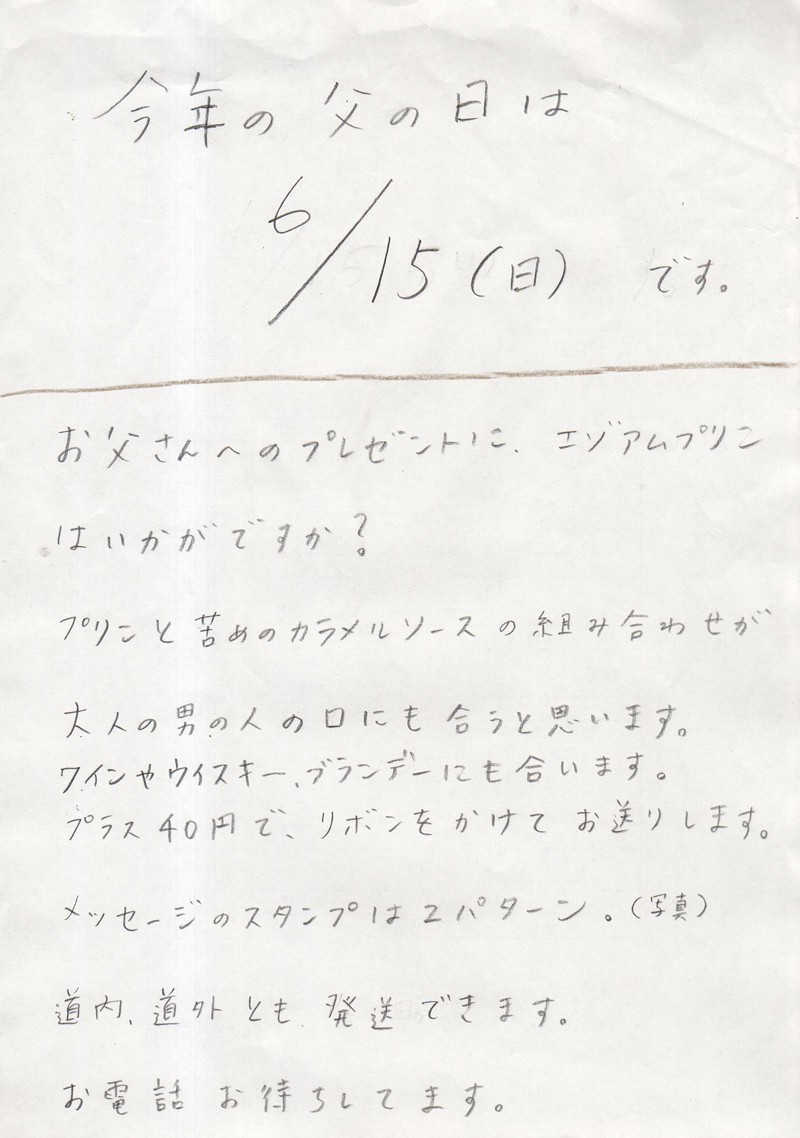 今年の父の日は
6/15(日) です。
お父さんへのプレゼントに、エゾアムプリン
はいかがですか?
プリンと苦めのカラメルソースの組み合わせが
大人の男の人の口にも合うと思います。
ワインやウイスキー、ブランデーにも合います。
プラス40円で、リボンをかけてお送りします。
メッセージのスタンプは2パターン。(写真)
道内、道外とも、発送できます。
お電話お待ちしてます。